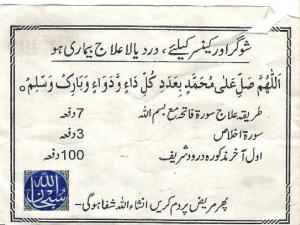 شوگر اور کینسر کیلئے، درد یا لا علاج بیماری ہو
اَللّٰهُمَّ صَلِّ عَلٰی مُحَمَّدٍ بِعَدَدِ کُلِّ دَاءٍ وَّدَوَاءٍ وَبَارِکْ وَسَلِّمْ ہ
طریقہ علاج سورۃ فاتحہ مع بسم اللہ 7 دفعہ
سورۃ اخلاص 3 دفعہ
اول آخر مذکورہ درود شریف 100 دفعہ
پھر مریض پر دم کریں انشاء اللہ شفا ہوگی۔
سُبْحَانَ اللّٰه